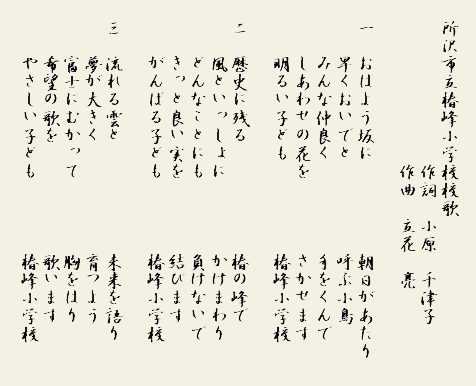 所沢市立椿峰小学校校歌
作詞 小原 千津子
作曲 立花 亮
一
おはよう坂に 朝日があたり
早くおいでと 呼ぶ小鳥
みんな仲良く 手をくんで
しあわせの花を さかせます
明るい子ども 椿峰小学校
二
歴史に残る 椿の峰で
風といっしょに かけまわり
どんなことにも 負けないで
きっと良い実を 結びます
がんばる子ども 椿峰小学校
三
流れる雲と 未来を語り
夢が大きく 育つよう
富士にむかって 胸をはり
希望の歌を 歌います
やさしい子ども 椿峰小学校